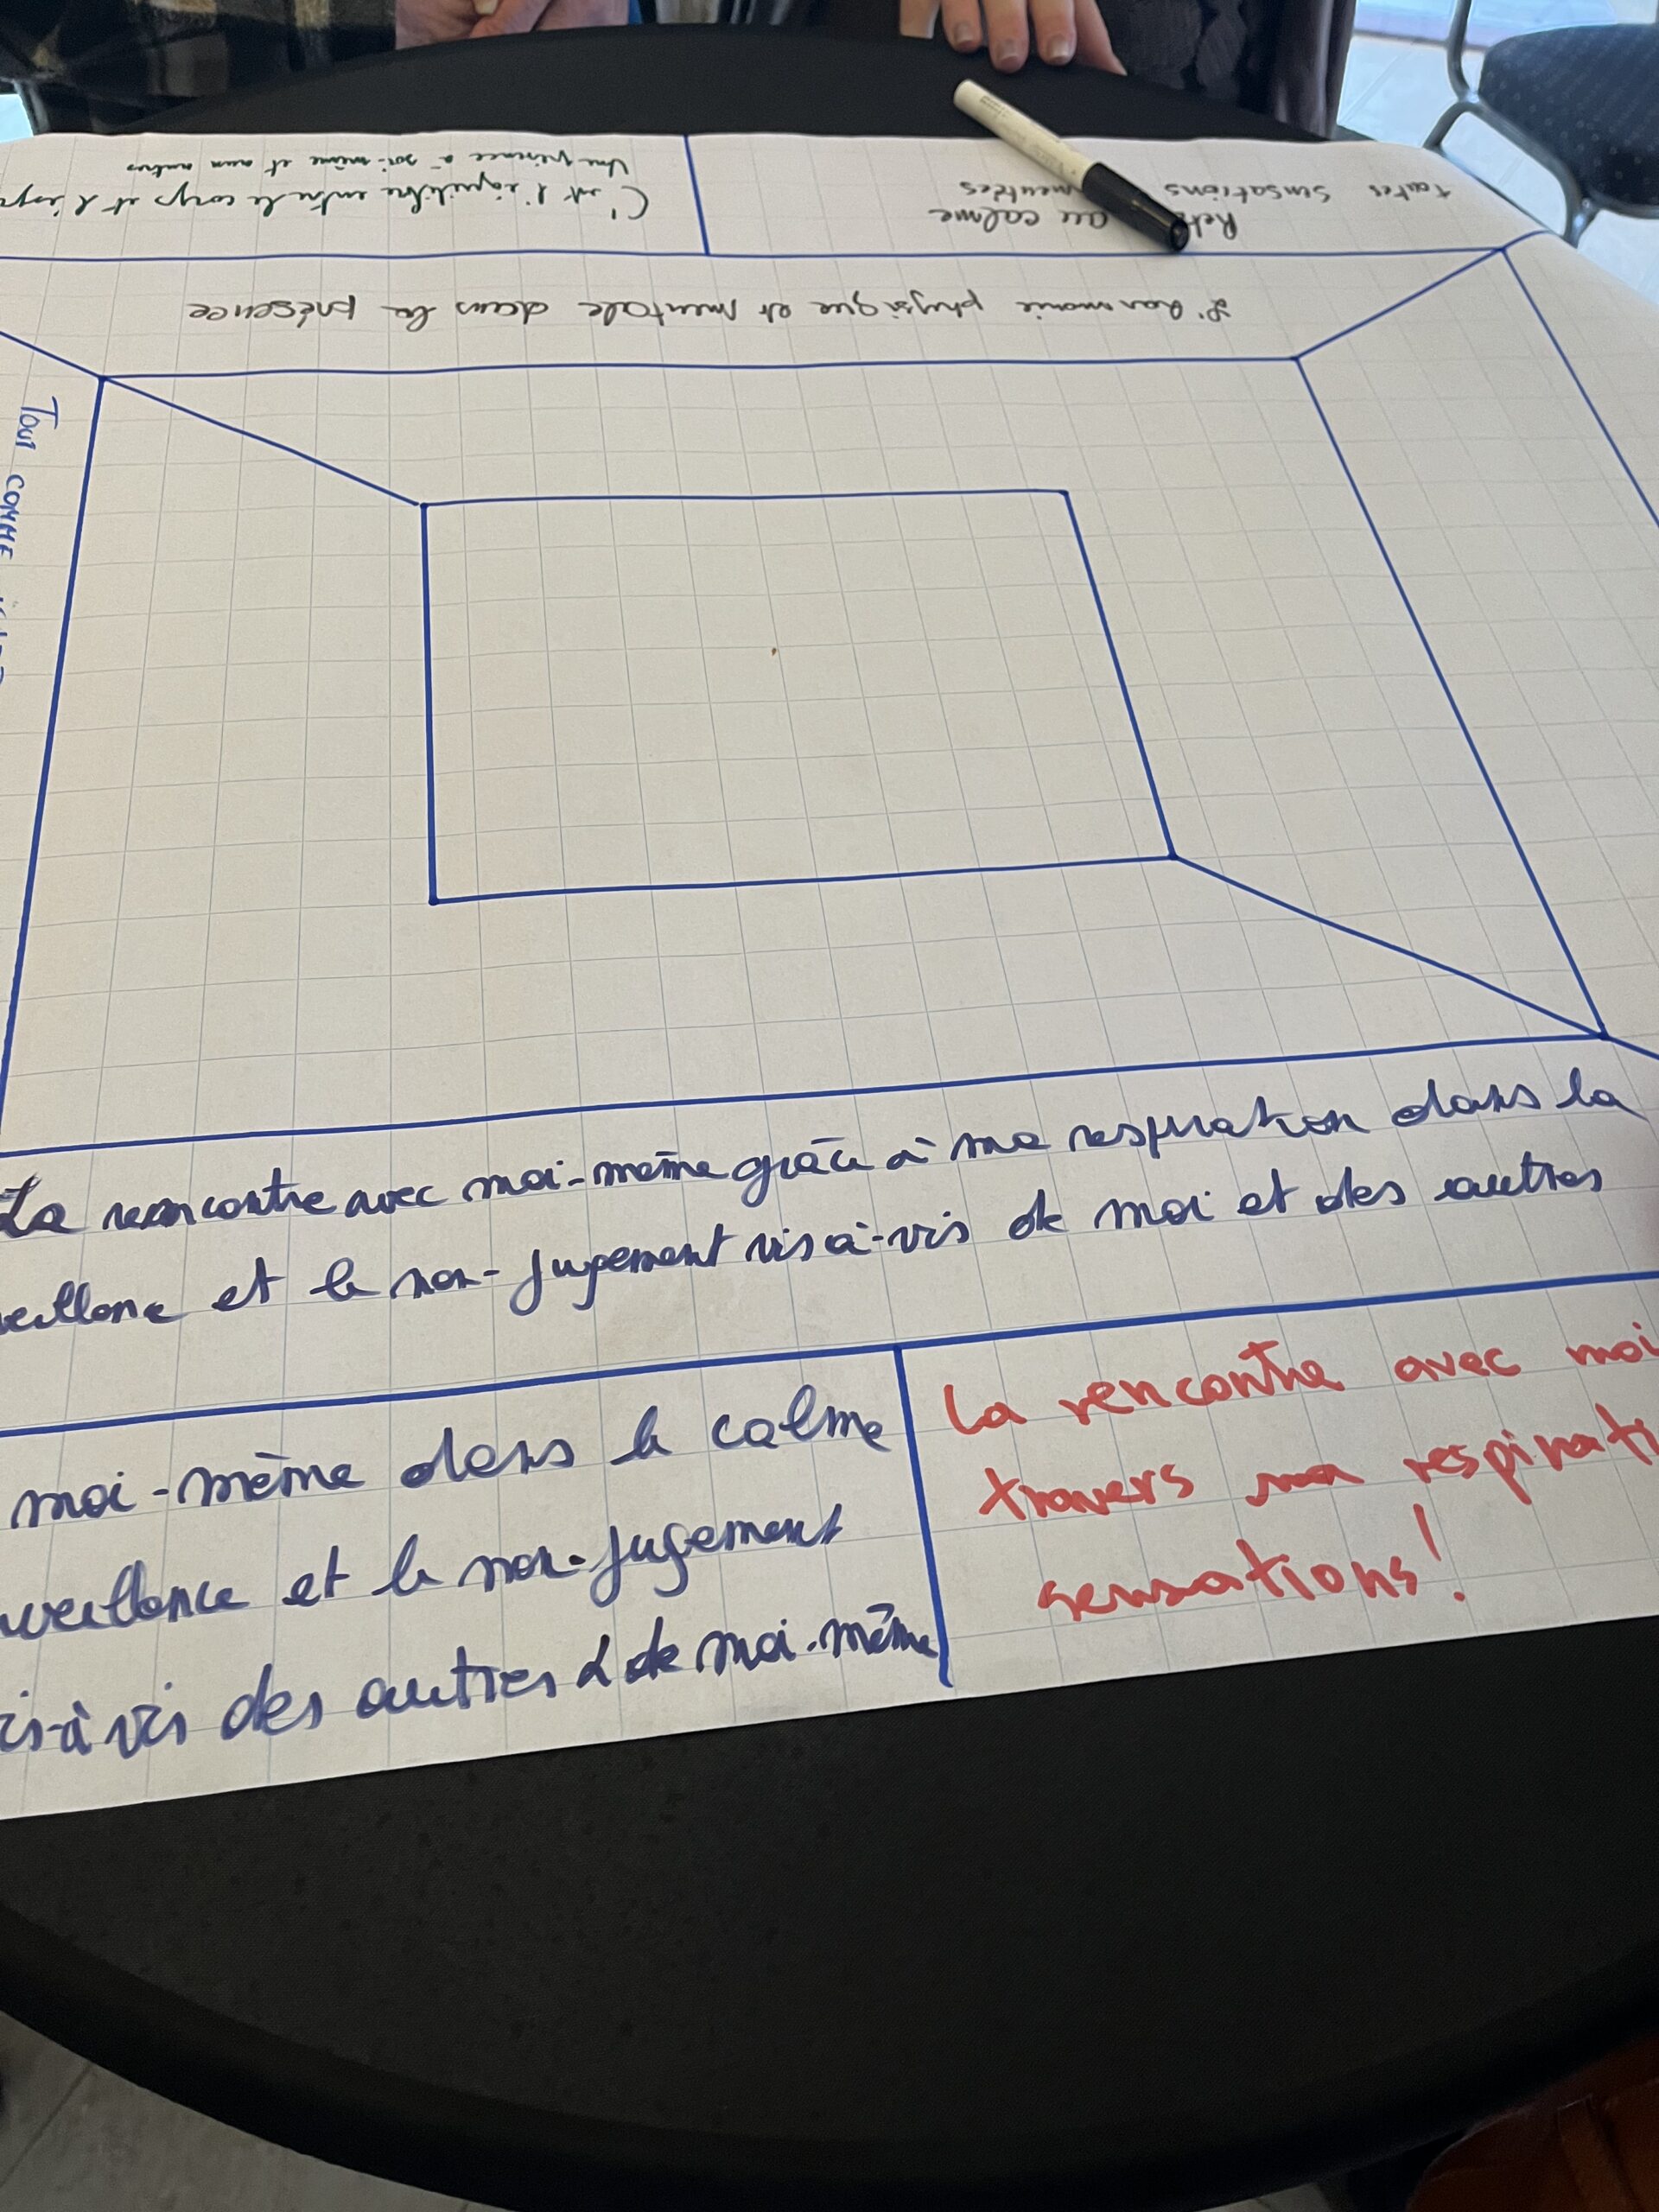 Une présence à soi-même et aux autres
C'est l'équilibre entre le corps et l'
au calme
toutes sensations
L'harmonie physique et mentale dans la présence
Tout COMME
La rencontre avec moi-même grâce à ma respiration dans la
veillance et le non-jugement vis à-vis de moi et des autres
moi-même dans le calme
veillance et le non-jugement
is-à vis des autres & de moi-même
La rencontre avec moi
travers ma respirati
sensations!